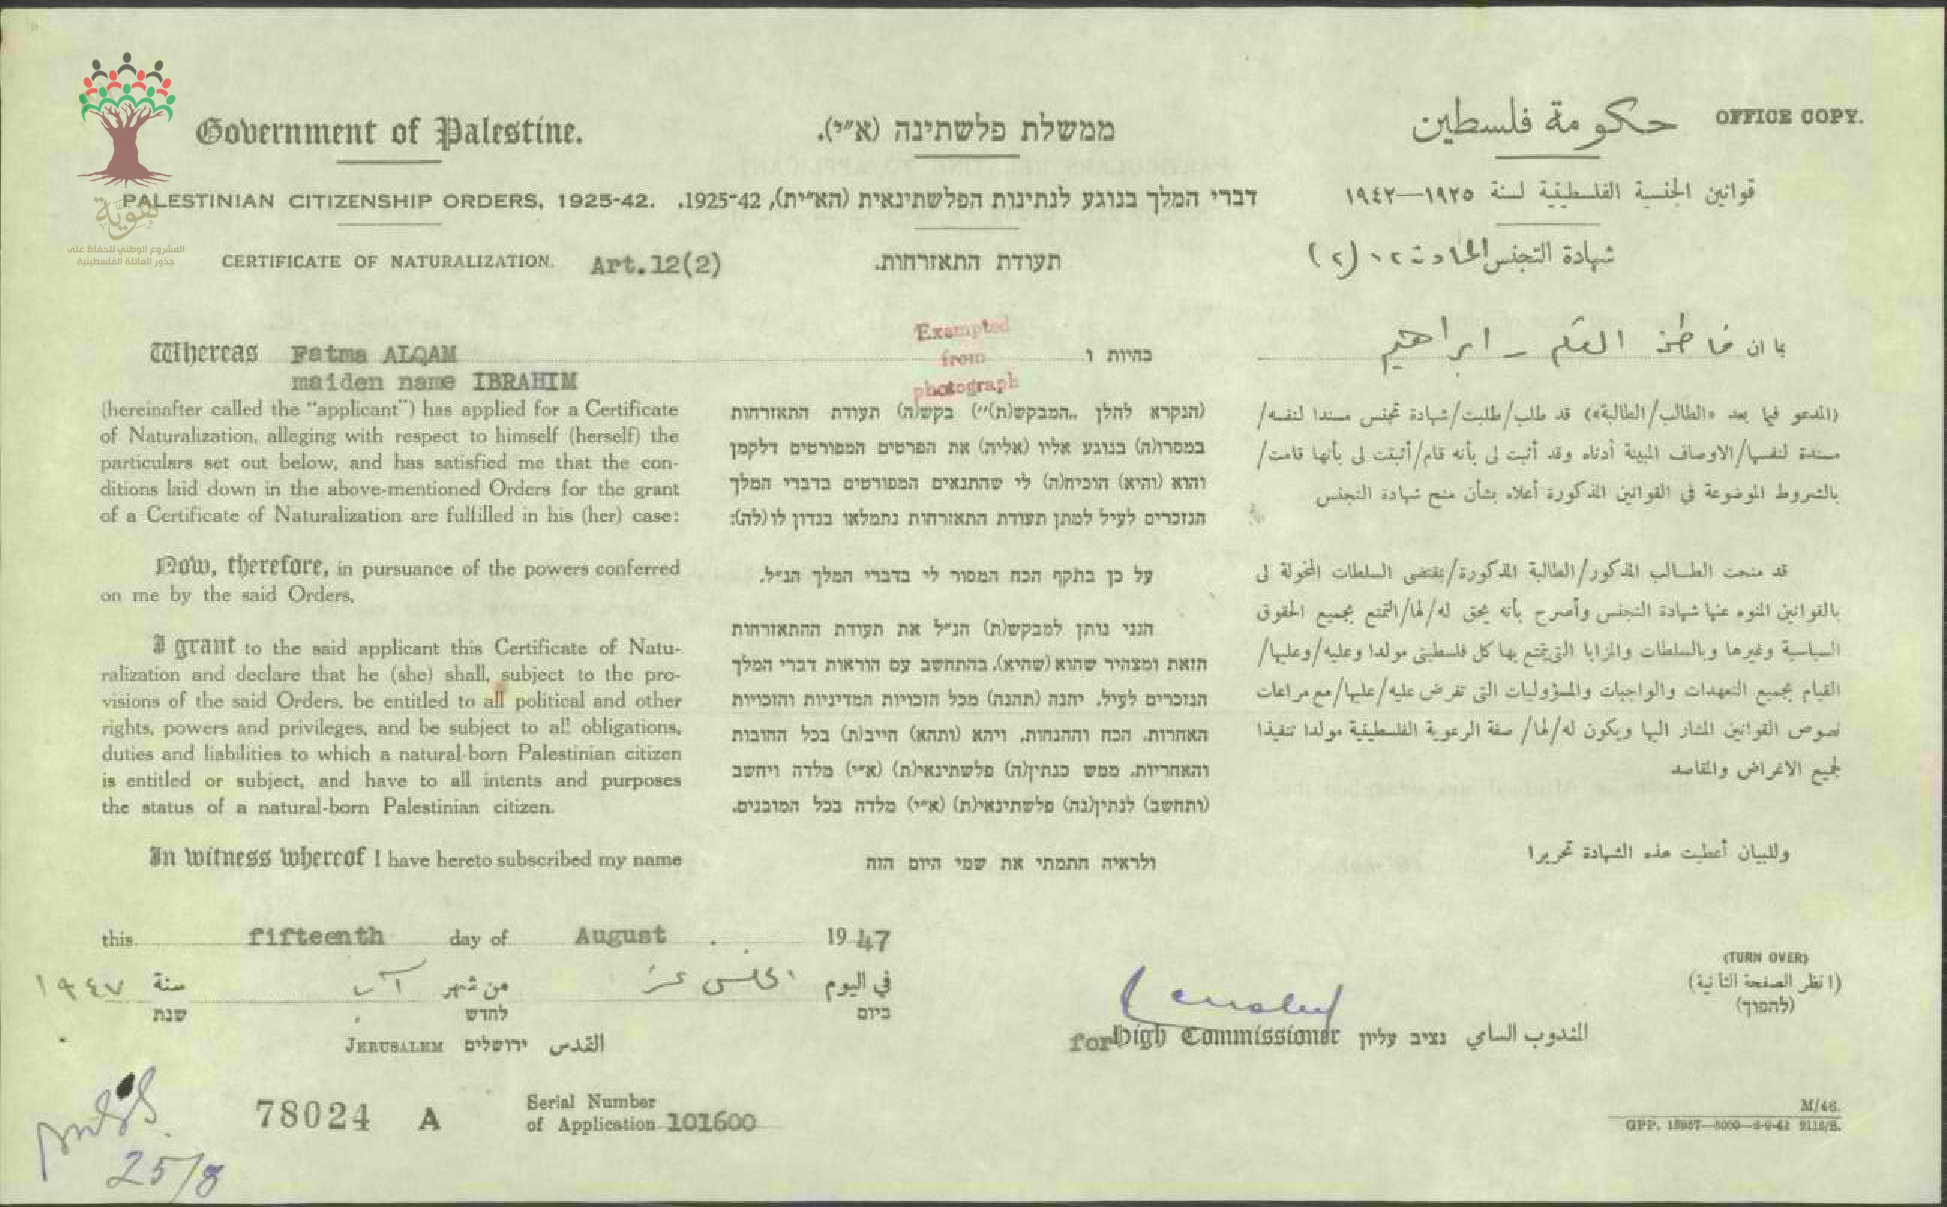 هوية
المشروع الوطني للحفاظ على
جذور العائلة الفلسطينية
OFFICE COPY.
Government of Palestine.
ממשלת פלשתינה (א״י).
حكومة فلسطين
PALESTINIAN CITIZENSHIP ORDERS, 1925-42.
דברי המלך בנוגע לנתינות הפלשתינאית (הא״ית), 1925-42.
قوانين الجنسية الفلسطينية لسنة ١٩٢٥—١٩٤٢
CERTIFICATE OF NATURALIZATION. Art.12(2)
תעודת התאזרחות.
شهادة التجنس المادة ١٢ (٢)
Exempted
from
photograph
Whereas Fatma ALQAM
maiden name IBRAHIM
(hereinafter called the "applicant") has applied for a Certificate
of Naturalization, alleging with respect to himself (herself) the
particulars set out below, and has satisfied me that the con-
ditions laid down in the above-mentioned Orders for the grant
of a Certificate of Naturalization are fulfilled in his (her) case:
Now, therefore, in pursuance of the powers conferred
on me by the said Orders,
I grant to the said applicant this Certificate of Natu-
ralization and declare that he (she) shall, subject to the pro-
visions of the said Orders, be entitled to all political and other
rights, powers and privileges, and be subject to all obligations,
duties and liabilities to which a natural-born Palestinian citizen
is entitled or subject, and have to all intents and purposes
the status of a natural-born Palestinian citizen.
In witness whereof I have hereto subscribed my name
בהיות ו
(הנקרא להלן „המבקש(ת)״) בקש(ה) תעודת התאזרחות
במסרו(ה) בנוגע אליו (אליה) את הפרטים המפורטים דלקמן
והוא (והיא) הוכיח(ה) לי שהתנאים המפורטים בדברי המלך
הנזכרים לעיל למתן תעודת התאזרחות נתמלאו בנדון לו (לה):
על כן בתקף הכח המסור לי בדברי המלך הנ״ל.
הנני נותן למבקש(ת) הנ״ל את תעודת ההתאזרחות
הזאת ומצהיר שהוא (שהיא), בהתחשב עם הוראות דברי המלך
הנזכרים לעיל, יהנה (תהנה) מכל הזכויות המדיניות והזכויות
האחרות, הכח וההנחות, ויהא (ותהא) חייב(ת) בכל החובות
והאחריות, ממש כנתין(ה) פלשתינאי(ת) (א״י) מלדה ויחשב
(ותחשב) לנתין(נה) פלשתינאי(ת) (א״י) מלדה בכל המובנים.
ולראיה חתמתי את שמי היום הזה
بما ان فاطمة العلم - ابراهيم
(المدعو فيما بعد «الطالب/الطالبة») قد طلب/طلبت/شهادة تجنس مسندا لنفسه/
مسندة لنفسها/الاوصاف المبينة أدناه وقد أثبت لى بأنه قام/أثبتت لى بأنها قامت/
بالشروط الموضوعة في القوانين المذكورة أعلاه بشأن منح شهادة التجنس
قد منحت الطالب المذكور/الطالبة المذكورة/بمقتضى السلطات المخولة لى
بالقوانين المنوه عنها شهادة التجنس وأصرح بأنه يحق له/لها/التمتع بجميع الحقوق
السياسية وغيرها وبالسلطات والمزايا التي يتمتع بها كل فلسطيني مولدا وعليه/وعليها/
القيام بجميع التعهدات والواجبات والمسؤوليات التى تفرض عليه/عليها/مع مراعات
نصوص القوانين المشار اليها ويكون له/لها/ صفة الرعوية الفلسطينية مولدا تنفيذا
لجميع الاغراض والمقاصد
وللبيان أعطيت هذه الشهادة تحريرا
this fifteenth day of August 1947
في اليوم الخامس عشر من شهر آب سنة ١٩٤٧
ביום לחדש שנת
JERUSALEM ירושלים القدس
(TURN OVER)
(انظر الصفحة الثانية)
(להפוך)
for High Commissioner נציב עליון المندوب السامي
78024 A
Serial Number
of Application 101600
25/8
M/46.